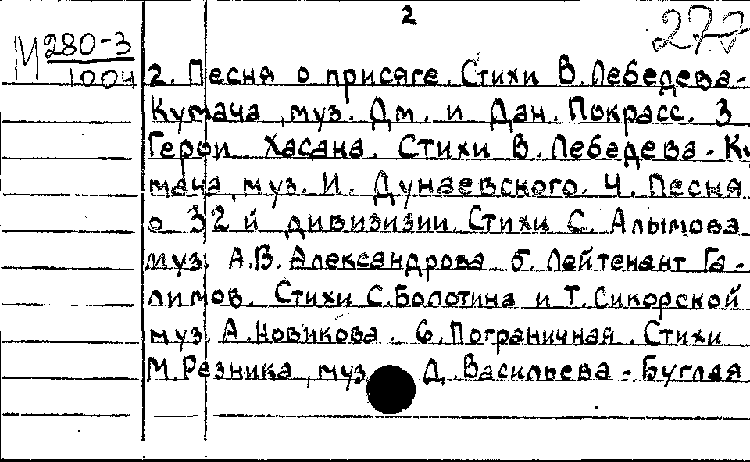 2
277
М 280-3
1004
2. Песня о присяге. Стихи В. Лебедева-
Кумача, муз. Дм. и Дан. Покрасс. 3
Герои Хасана. Стихи В. Лебедева-Ку
мача, муз. И. Дунаевского. 4. Песня
о 32й дивизизии. Стихи С. Алымова
муз. А.В. Александрова 5. Лейтенант Га-
лимов. Стихи С. Болотина и Т. Сикорской
муз. А. Новикова. 6. Пограничная. Стихи
М. Резника, муз. Д. Васильева-Буглая